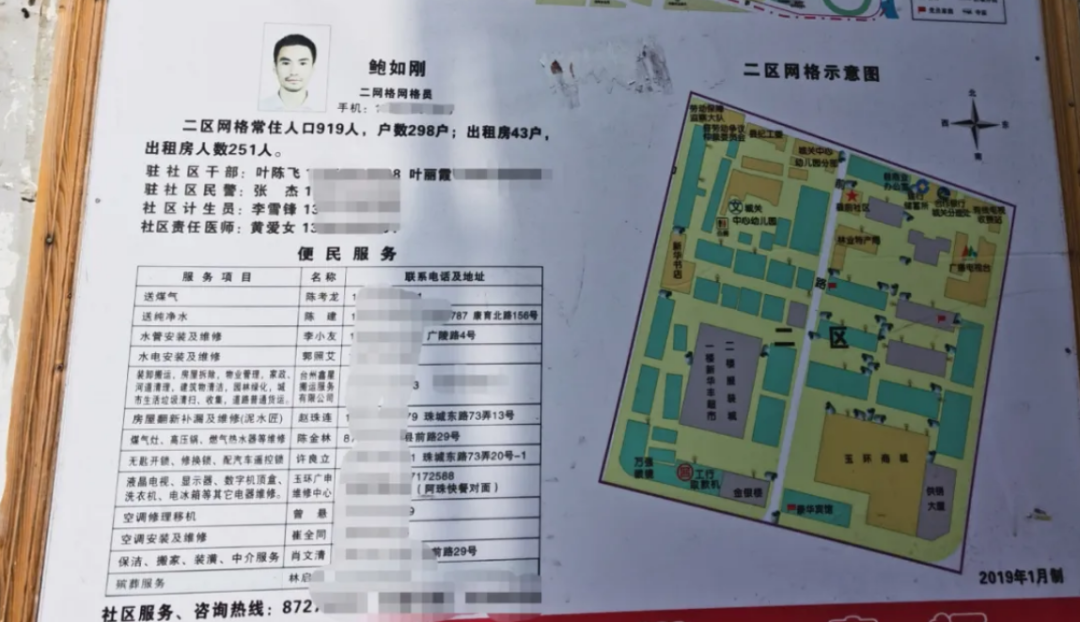 鲍如刚
二网格网格员
手机：1
二区网格常住人口919人，户数298户；出租房43户，
出租房人数251人。
驻社区干部：叶陈飞 1 8 叶丽霞
驻社区民警：张 杰 1
社区计生员：李雪锋 13
社区责任医师：黄爱女 13
便民服务
服务项目 名称 联系电话及地址
送煤气 陈考龙 1
送纯净水 陈 建 1 787 康育北路156号
水管安装及维修 李小友 广陵路4号
水电安装及维修 郭照艾
装卸搬运，房屋拆除，物业管理，家政， 台州鑫星
河道清理，建筑物清洁，园林绿化，城 搬运服务 3
市生活垃圾清扫、收集，道路普通货运。 有限公司
房屋翻新补漏及维修(泥水匠) 赵珠连 1 79 珠城东路73弄13号
煤气灶、高压锅、燃气热水器等维修 陈金林 87 县前路29号
无匙开锁、修换锁、配汽车遥控锁 许良立 1 珠城东路73弄20号-1
液晶电视、显示器、数字机顶盒、 玉环广申 7172588
洗衣机、电冰箱等其它电器维修。 维修中心 （阿珠快餐对面）
空调修理移机 曾 悬 9
空调安装及维修 崔全同
保洁、搬家、装潢、中介服务 肖文清 前路29号
殡葬服务 林启
社区服务、咨询热线：872
二区网格示意图
北
西 东
南
劳动保障
监察大队
县劳动争议
仲裁委员会
县纪工委
城关中心
幼儿园分部
城关
中心幼儿园
新华书店
林业特产局
广播电视台
路
二区
二楼服装城
一楼新华丰超市
玉环商城
工行
取款机
金银楼
豪华宾馆
供销
大厦
2019年1月制